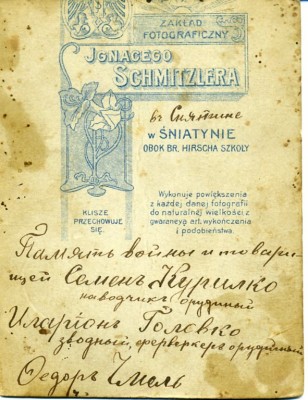 ZAKŁAD
FOTOGRAFICZNY
JGNACEGO
SCHMITZLERA
въ Снятинѣ
W ŚNIATYNIE
OBOK BR. HIRSCHA SZKOŁY
Wykonuje powiększenia
z każdej danej fotografii
do naturalnej wielkości z
gwarancyą art. wykończenia
i podobieństwa.
KLISZE
PRZECHOWUJE
SIĘ.
Память войны и товари
щей Семенъ Курилко
наводчикъ орудiйный
Иларiонъ Головко
взводный, феерверкеръ орудiйный
Ѳедоръ Хмель